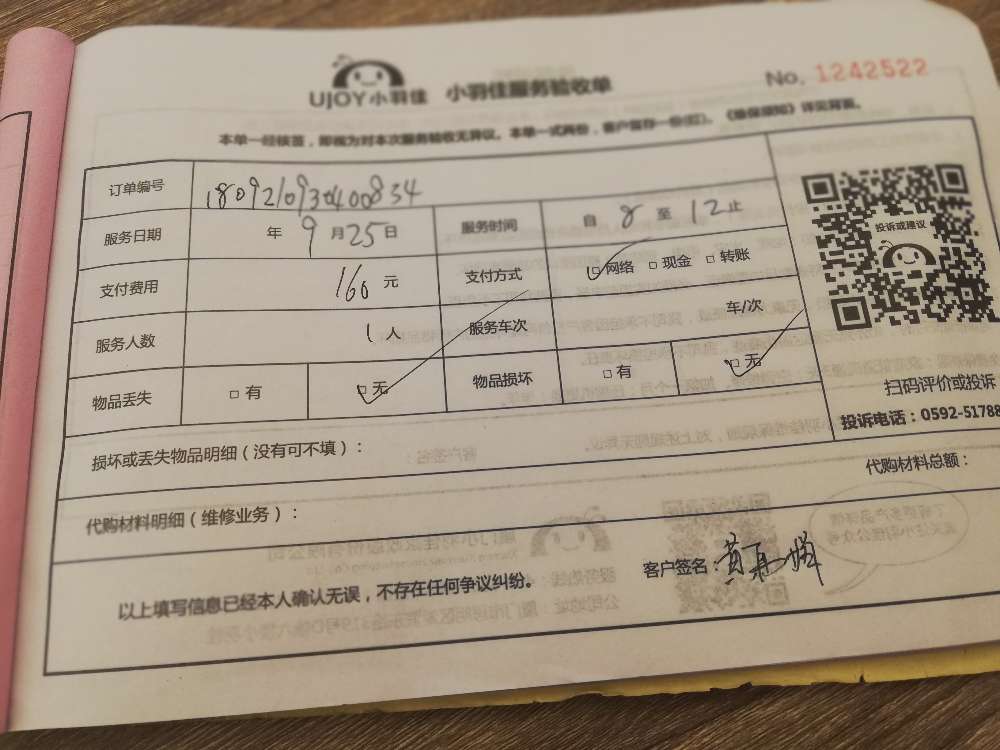 UJOY小羽佳 小羽佳服务验收单 No. 1242522
本单一经核签，即视为对本次服务验收无异议。本单一式两份，客户留存一份(红)。《维保须知》详见背面。
订单编号 180921093400834
服务日期 年 9 月 25 日 服务时间 自 8 至 12 止
支付费用 160 元 支付方式 □网络 □现金 □转账
服务人数 1 人 服务车次 车/次
物品丢失 □有 □无 物品损坏 □有 □无
投诉或建议
扫码评价或投诉
投诉电话：0592-51788
损坏或丢失物品明细（没有可不填）：
代购材料明细（维修业务）： 代购材料总额：
以上填写信息已经本人确认无误，不存在任何争议纠纷。 客户签名：黄